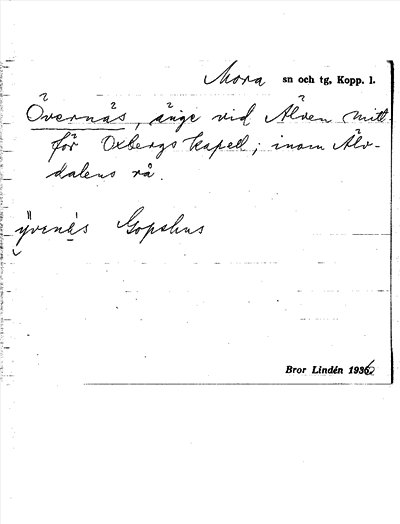 Mora sn och tg, Kopp. l.
Övernäs, änge vid Älven mitt
för Oxbergs kapell; inom Älv-
dalens rå.
ÿvẹnäs Gopshus
Bror Lindén 1936